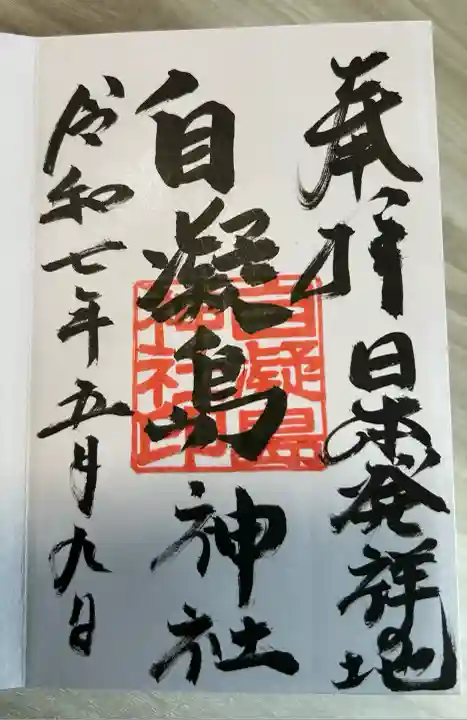 奉拝 日本発祥の地
自凝島神社
自凝島神社印
令和七年五月九日